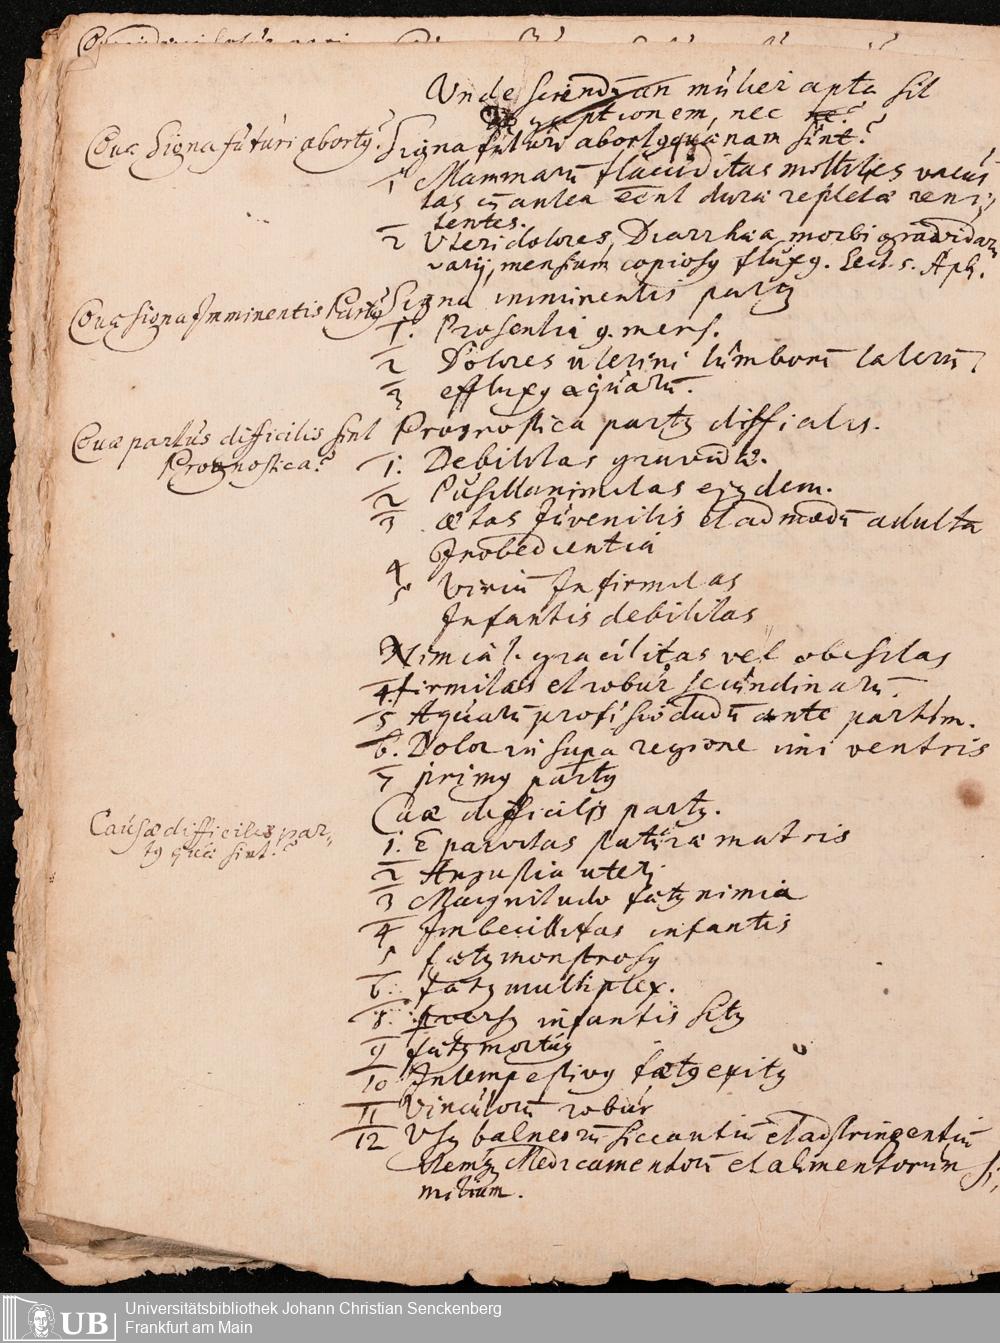 Unde sciendum an mulier apta sit
ad conceptionem, nec ne?
Quæ Signa futuri abortus?
Signa futuri abortus quænam sint?
1 Mammarum flacciditas mollities vacui
tas cum antea essent duræ repletæ reni,
tentes.
2 Uteri dolores, Diarrhæa morbi gravidarum
varij, mensium copiosus fluxus. Sect. 5. Aph.
Quæ signa Imminentis Partus
Signa imminentis partus
1. Præsentia 9. mens.
2 Dolores uterini lumborum laterum
3 effluxus aquarum.
Quæ partus difficilis sint
Prognostica?
Prognostica partus difficilis.
1. Debilitas gravidæ.
2 Pusillanimitas ejusdem.
3 ætas Juvenilis et admodum adulta
Inobedientia
4
5 virium Infirmitas
Infantis debilitas
Nimia gracilitas vel obesitas
4. firmitas et robur secundinarum.
5 Aquarum profusio dudum ante partum.
6. Dolor in supa regione imi ventris
7 primus partus
Causæ difficiles par,
tus quæ sint?
Cuæ difficilis partus.
1. E parvitas staturæ matris
2 Angustia uteri
3 Magnitudo fætus nimia
4 Imbecillitas infantis
5 fætus monstrosus
6. fætus multiplex.
8. infantis situs
9 fætus mortuus
10 Intempestivus fætus exitus
11 Vinculorum robur
12 Usus balneorum siccantium et adstringentium
Medicamentorum et alimentorum si,
milium.
Universitätsbibliothek Johann Christian Senckenberg
Frankfurt am Main
UB